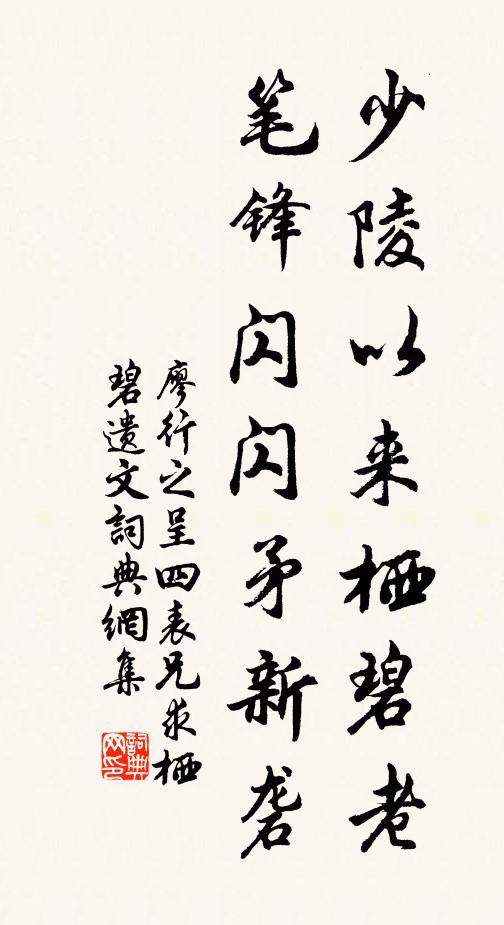 少陵以来栖碧老
笔锋闪闪矛新砻
廖行之呈四表兄求栖
碧遗文詞典網集
詞典
网印